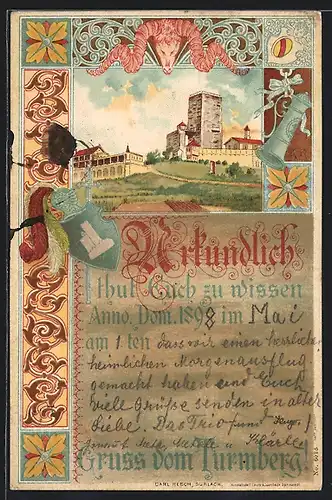 Urkundlich
thut Euch zu wissen
Anno. Dom. 1898 im Mai
am 1ten dass wir einen herrlichen
heimlichen Morgenausflug
gemacht haben und Euch
viel Grüße senden in alter
Liebe. Das Trio
Gruss vom Turmberg!
CARL HESCH, DURLACH.